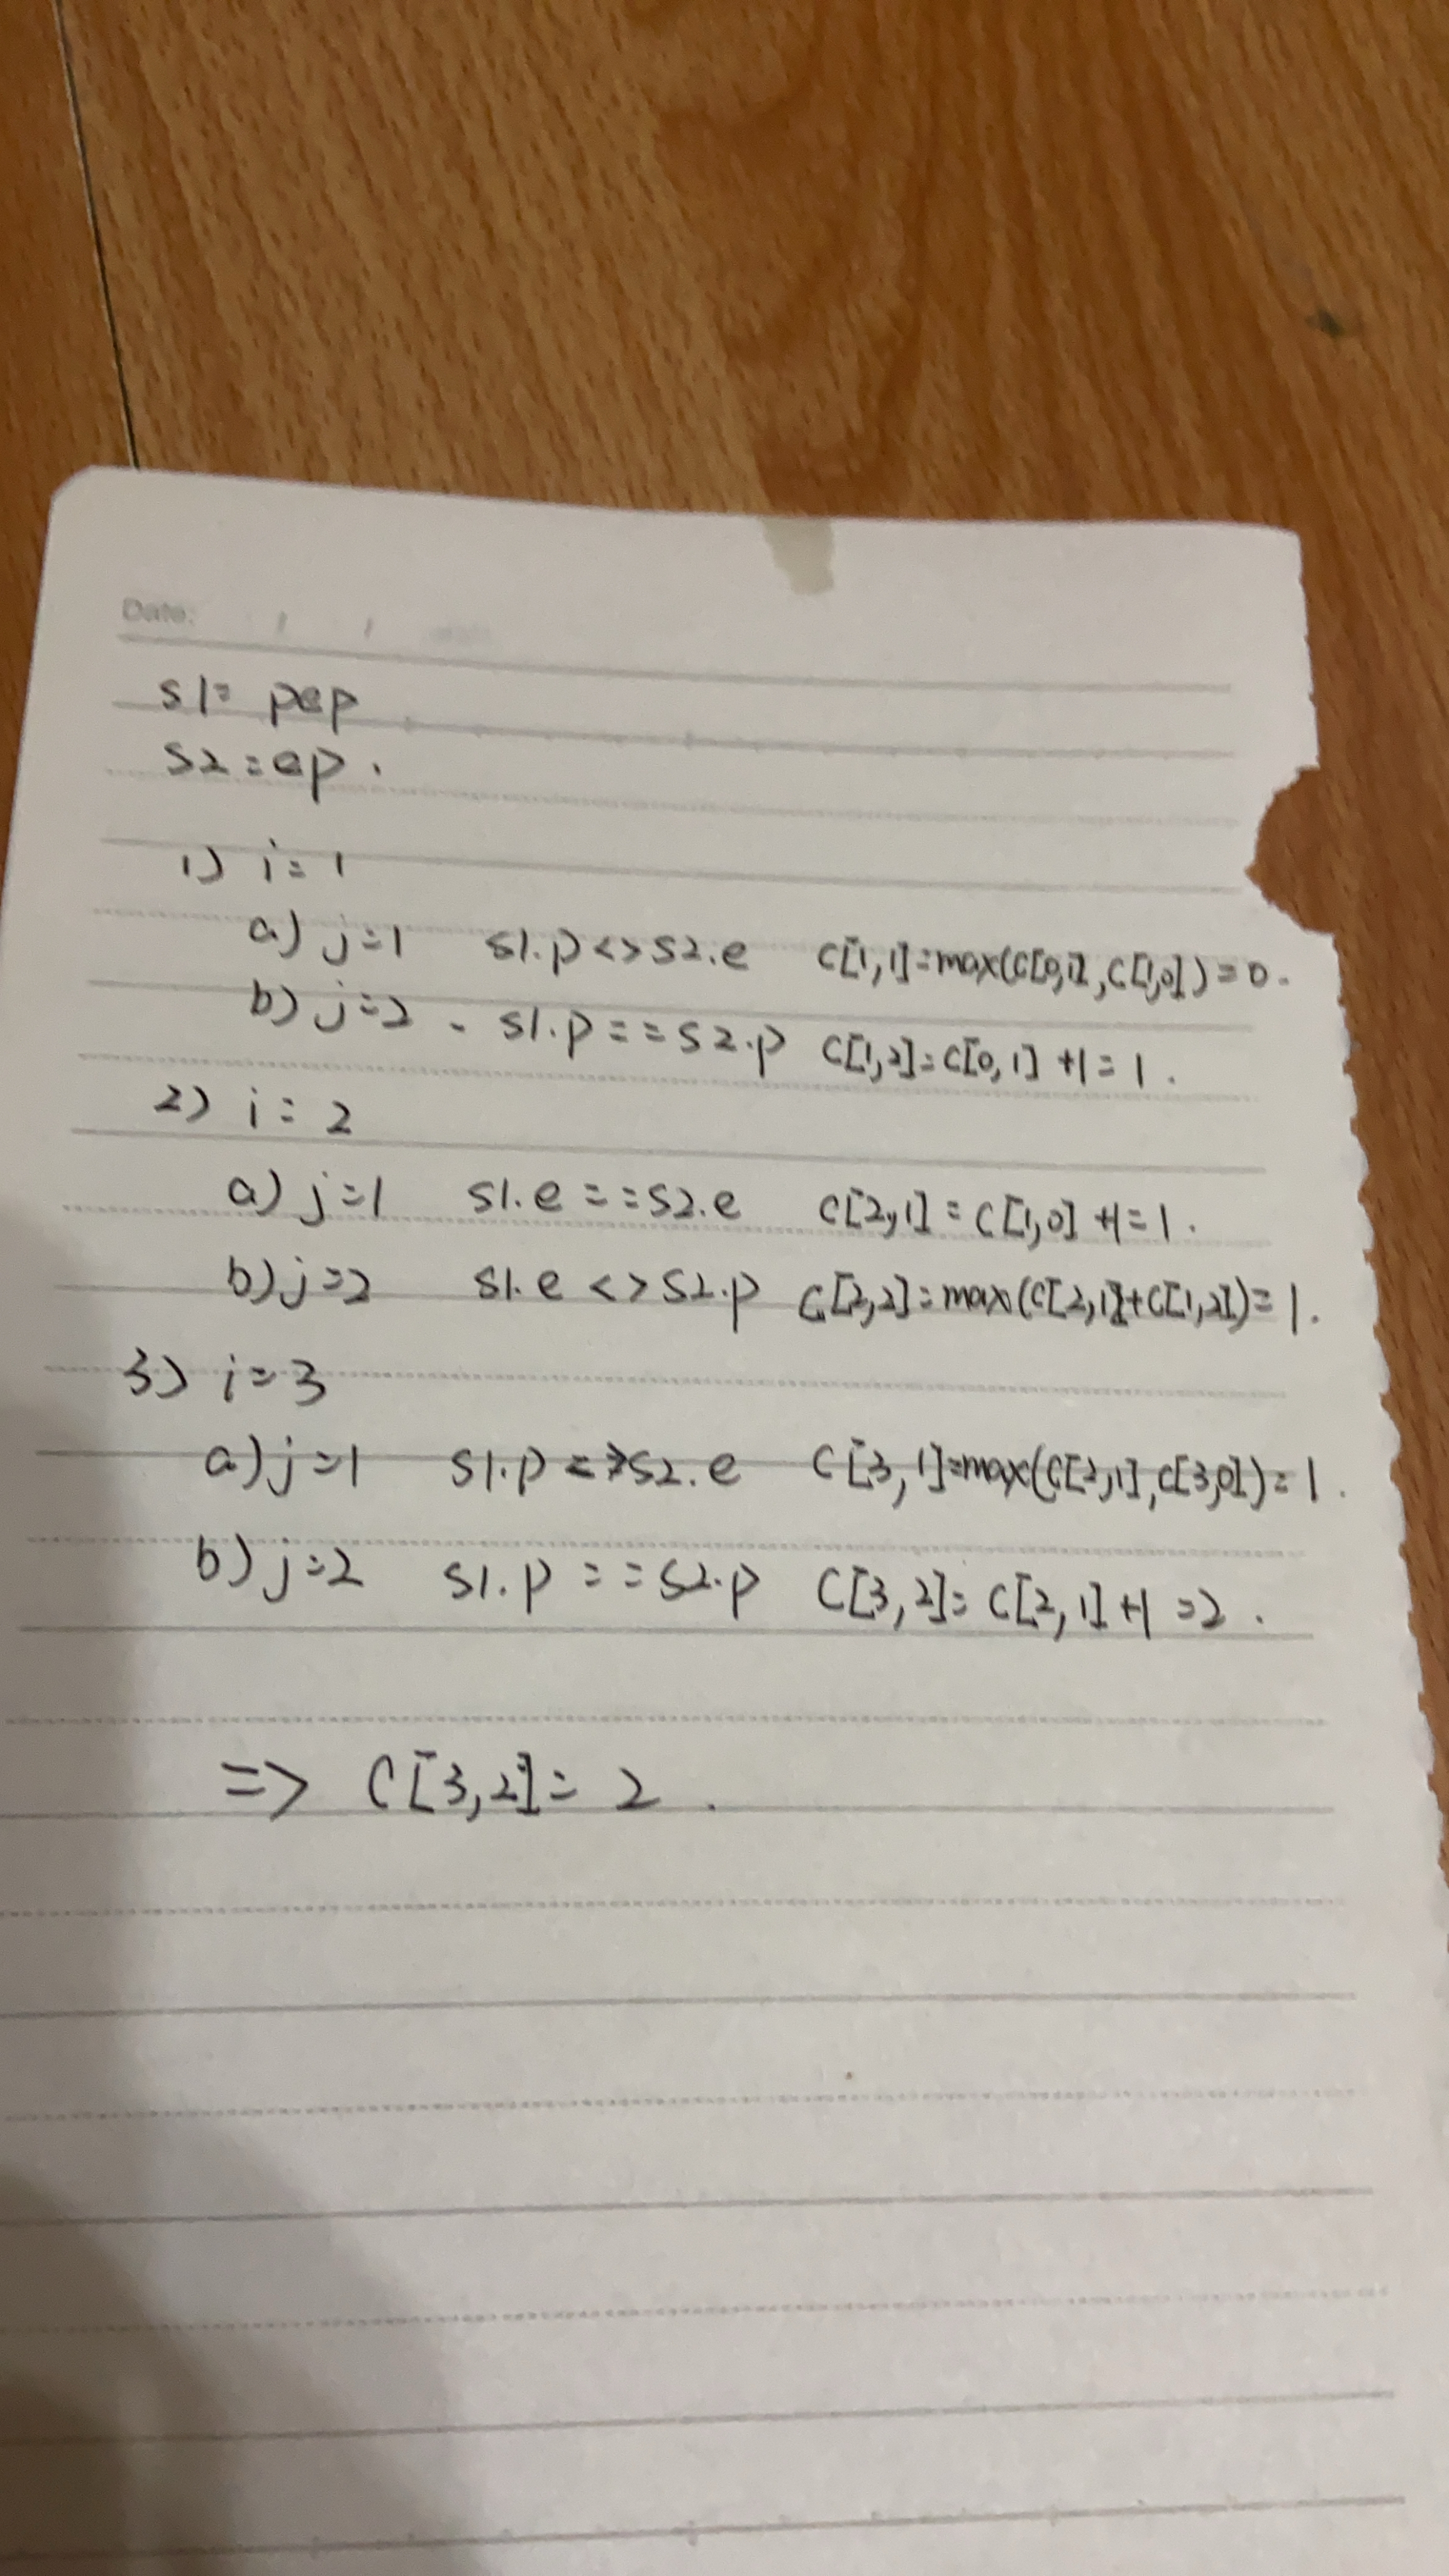 Date:
s1= pep
s2=ep.
1) i=1
a) j=1 s1.p<>s2.e c[1,1]=max(c[0,1],c[1,0])=0.
b) j=2 - s1.p==s2.p c[1,2]=c[0,1]+1=1.
2) i=2
a) j=1 s1.e==s2.e c[2,1]=c[1,0]+1=1.
b) j=2 s1.e<>s2.p c[2,2]=max(c[2,1]+c[1,2])=1.
3) i=3
a) j=1 s1.p<>s2.e c[3,1]=max(c[2,1],c[3,0])=1.
b) j=2 s1.p==s2.p c[3,2]=c[2,1]+1=2.
=> c[3,2]=2.